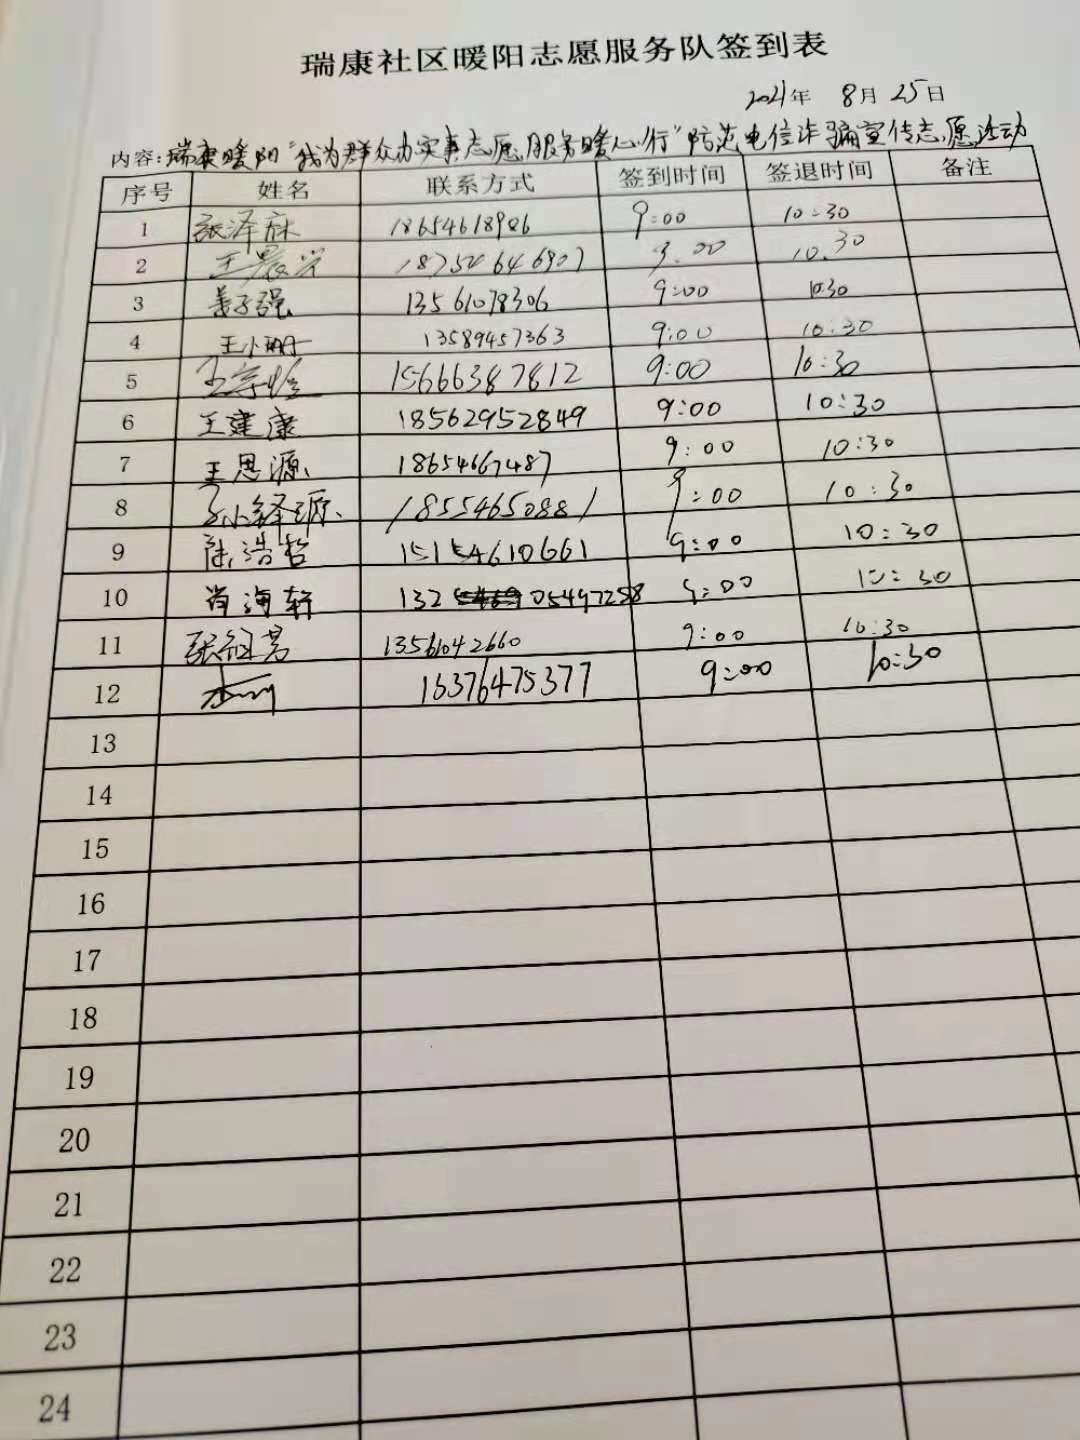 瑞康社区暖阳志愿服务队签到表
2021年 8月 25日
内容:瑞康暖阳“我为群众办实事志愿服务暖心行”防范电信诈骗宣传志愿活动
序号 姓名 联系方式 签到时间 签退时间 备注
1 18654618906 9:00 10:30
2 王晨兴 18754646907 9:00 10:30
3 姜子强 13561078306 9:00 10:30
4 王小珊 13589457363 9:00 10:30
5 15666387812 9:00 10:30
6 王建康 18562952849 9:00 10:30
7 王思源 18654667487 9:00 10:30
8 孙铎源 18554650881 9:00 10:30
9 陆浩哲 15154610661 9:00 10:30
10 肖海轩 13205497258 9:00 10:30
11 13561042660 9:00 10:30
12 16376475377 9:00 10:30
13
14
15
16
17
18
19
20
21
22
23
24